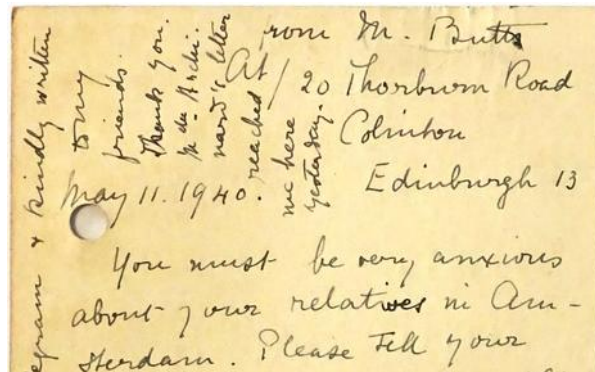 From M. Butts
At / 20 Thorburn Road
Colinton
Edinburgh 13
May 11. 1940.
You must be very anxious
about your relatives in Am-
sterdam. Please tell your
egram & kindly written
to my
friends.
Thank you.
M de
nard's letter
reached
me here
yesterday.